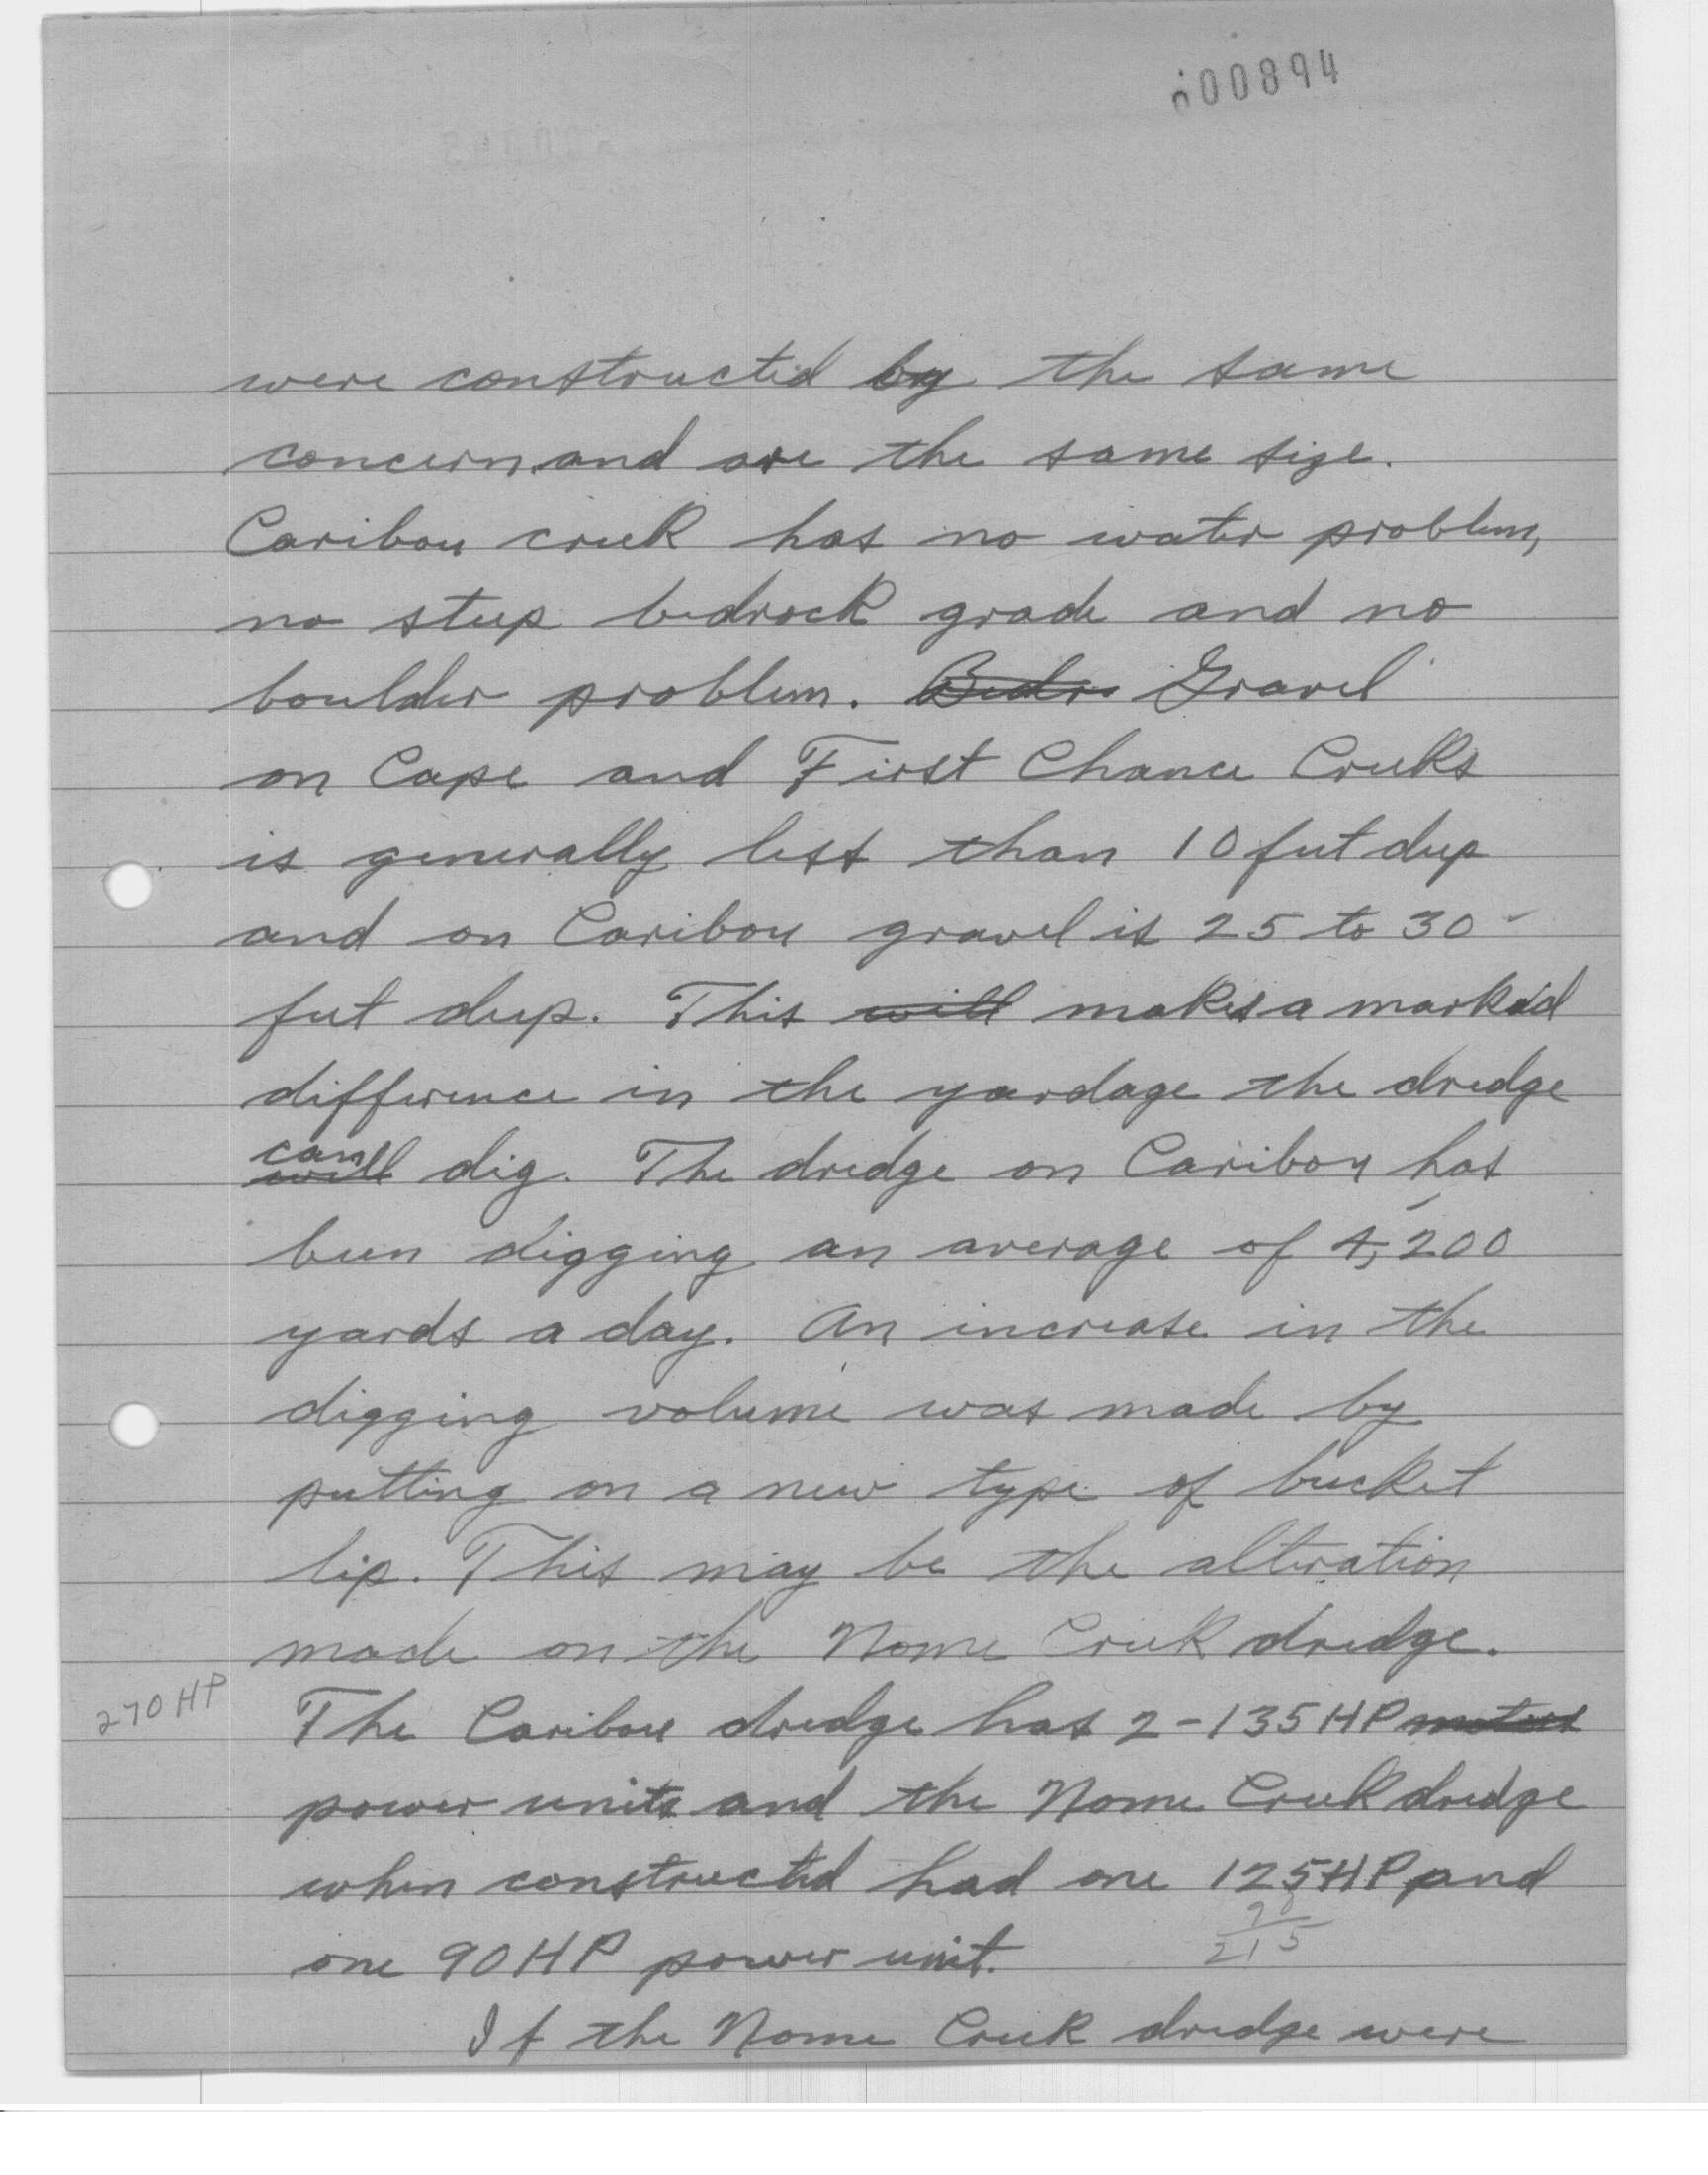 000894
were constructed by the same
concern and are the same size.
Caribou creek has no water problem,
no steep bedrock grade and no
boulder problem. Bedr. Gravel
on Cape and First Chance Creeks
is generally less than 10 feet deep
and on Caribou gravel is 25 to 30
feet deep. This will makes a marked
difference in the yardage the dredge
can
will dig. The dredge on Caribou has
been digging an average of 4,200
yards a day. An increase in the
digging volume was made by
putting on a new type of bucket
lip. This may be the alteration
made on the Nome Creek dredge.
270 HP
The Caribou dredge has 2-135 HP motors
power units and the Nome Creek dredge
when constructed had one 125 HP and
90
215
one 90 HP power unit.
If the Nome Creek dredge were